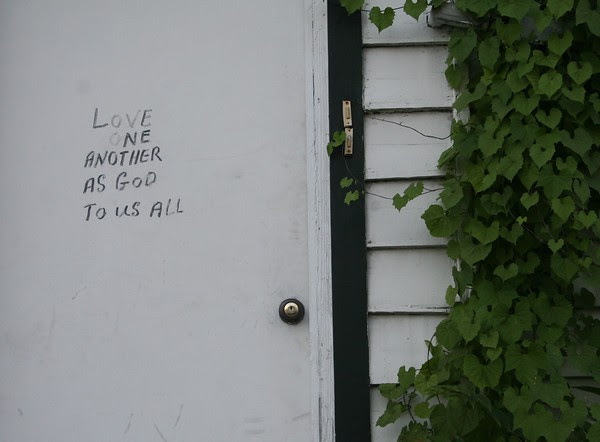 LOVE
ONE
ANOTHER
AS GOD
TO US ALL